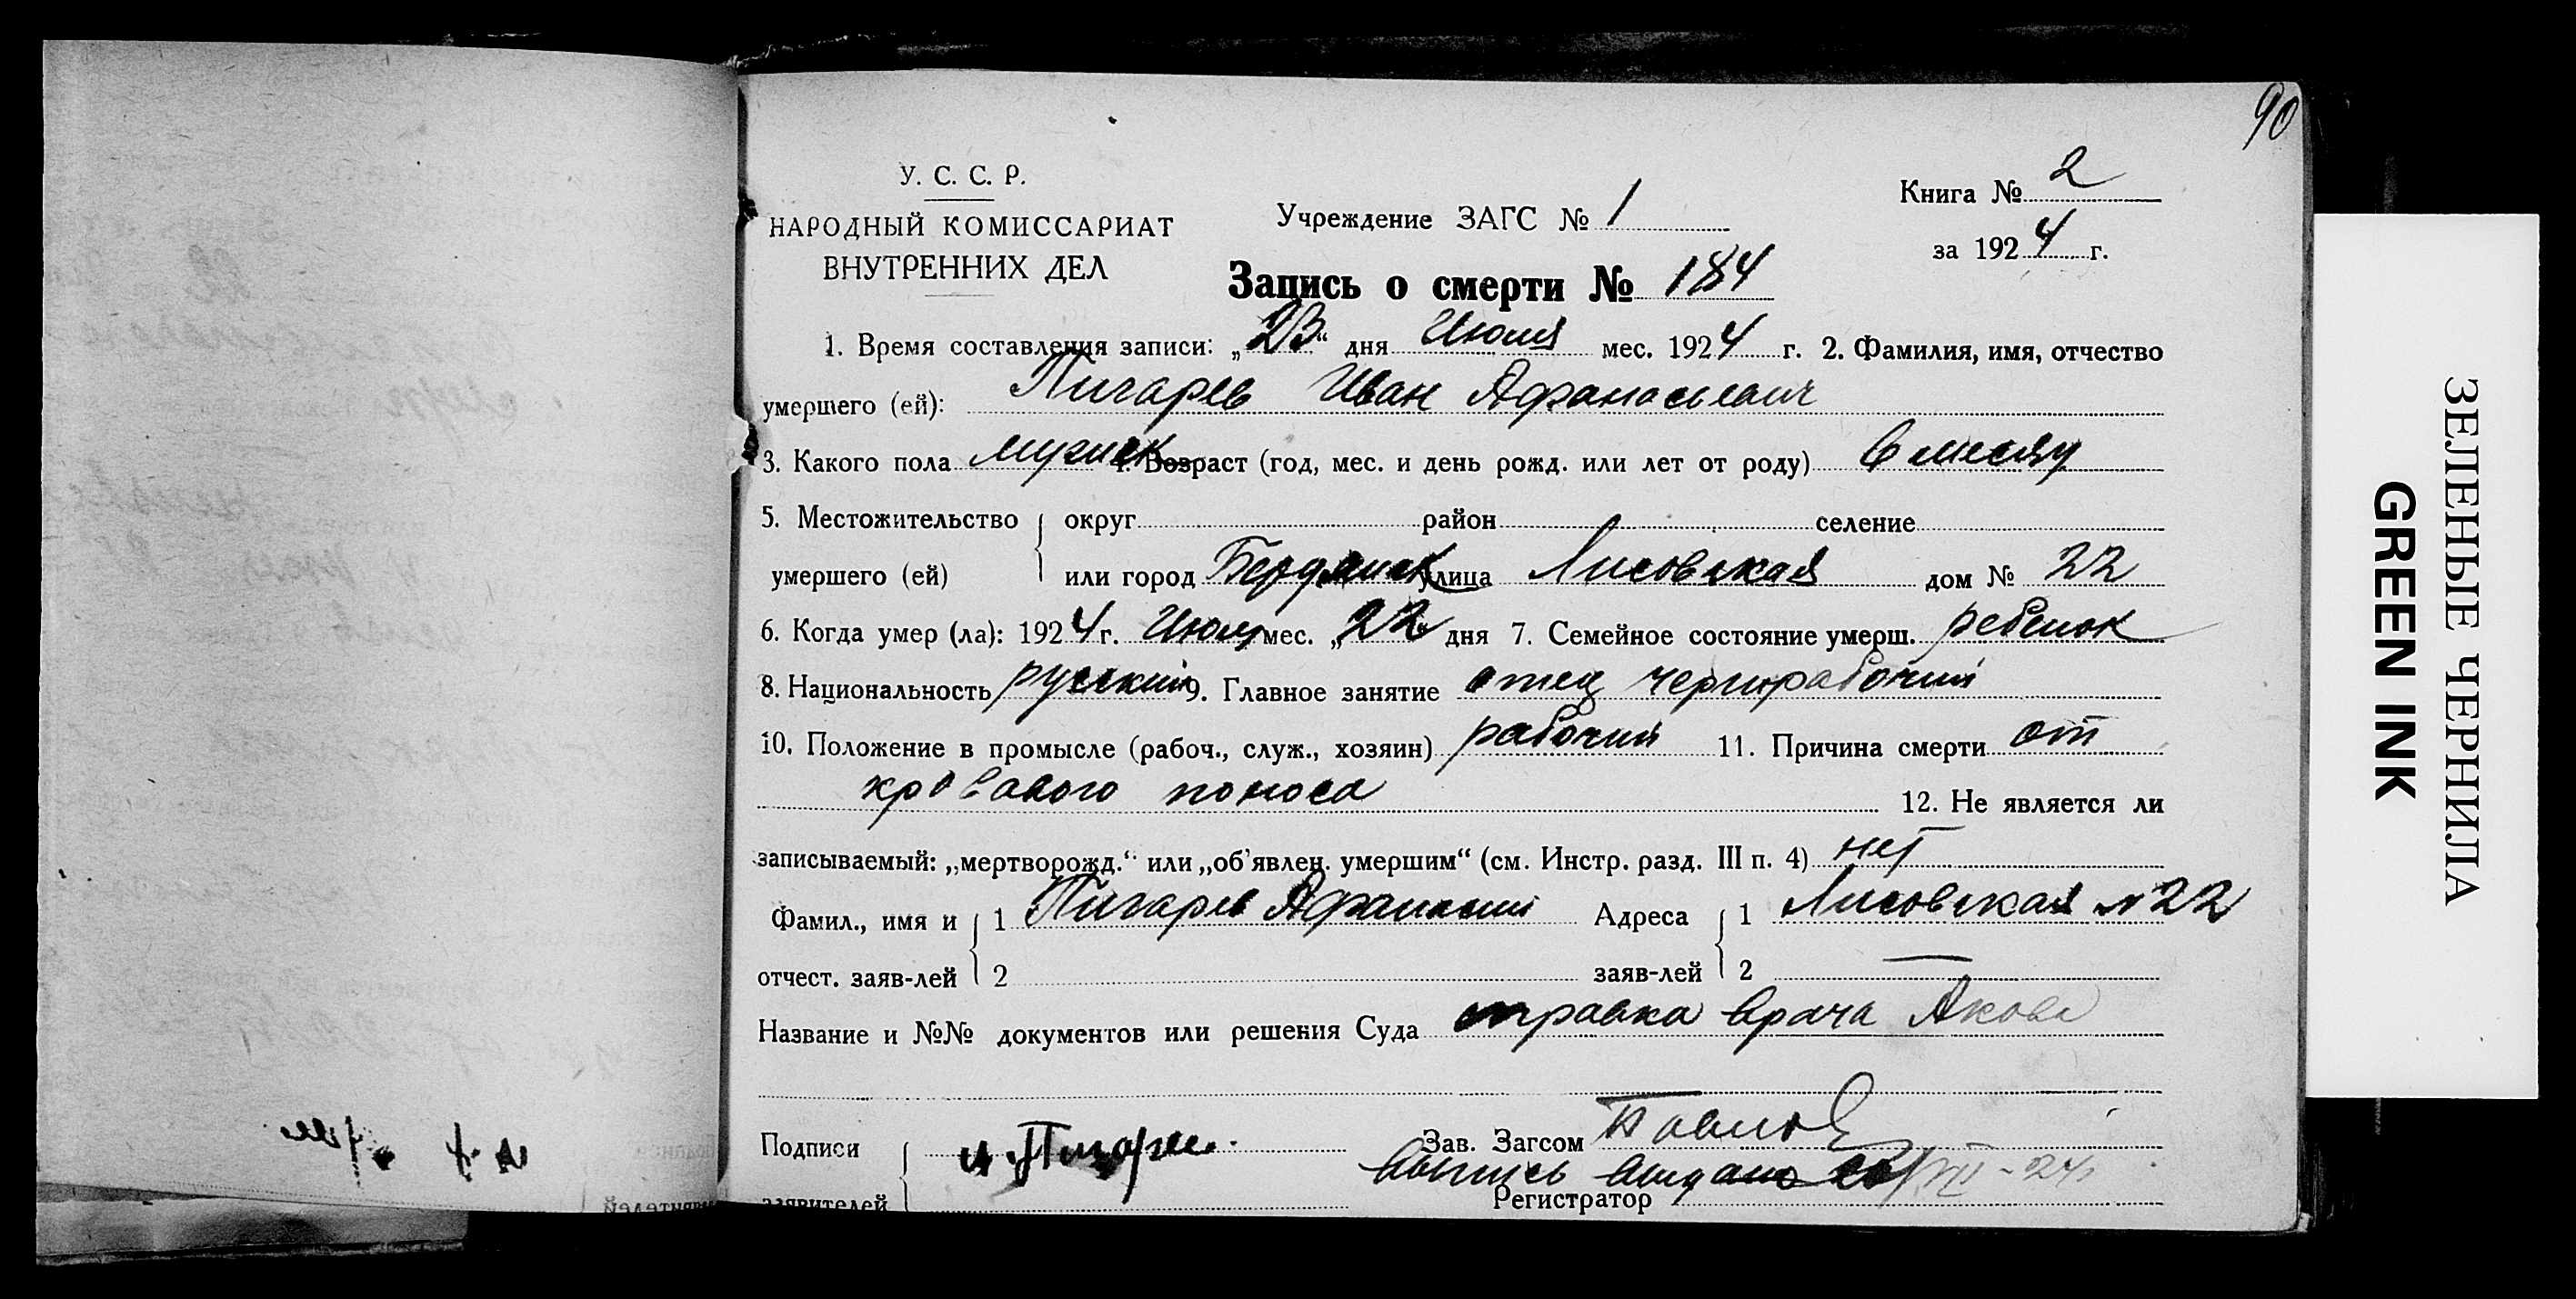 90
У. С. С. Р.
НАРОДНЫЙ КОМИССАРИАТ
ВНУТРЕННИХ ДЕЛ
Учреждение ЗАГС № 1
Книга № 2
за 1924 г.
Запись о смерти № 184
1. Время составления записи: „23“ дня Июля мес. 1924 г. 2. Фамилия, имя, отчество
умершего (ей): Пигарев Иван Афанасьевич
3. Какого пола мужск 4. Возраст (год, мес. и день рожд. или лет от роду) 6 месяц
5. Местожительство округ район селение
умершего (ей) или город Бердянск улица Лисовская дом № 22
6. Когда умер (ла): 1924 г. Июля мес. „22 дня 7. Семейное состояние умерш. ребенок
8. Национальность русский 9. Главное занятие отец чернорабочий
10. Положение в промысле (рабоч., служ., хозяин) рабочий 11. Причина смерти от
кровавого поноса 12. Не является ли
записываемый: „мертворожд.“ или „об'явлен. умершим“ (см. Инстр. разд. III п. 4) нет
Фамил., имя и 1 Пигарев Афанасий Адреса 1 Лисовская №22
отчест. заяв-лей 2 заяв-лей 2 —
Название и №№ документов или решения Суда справка врача
Подписи Зав. Загсом
заявителей Регистратор
ЗЕЛЕНЫЕ ЧЕРНИЛА
GREEN INK